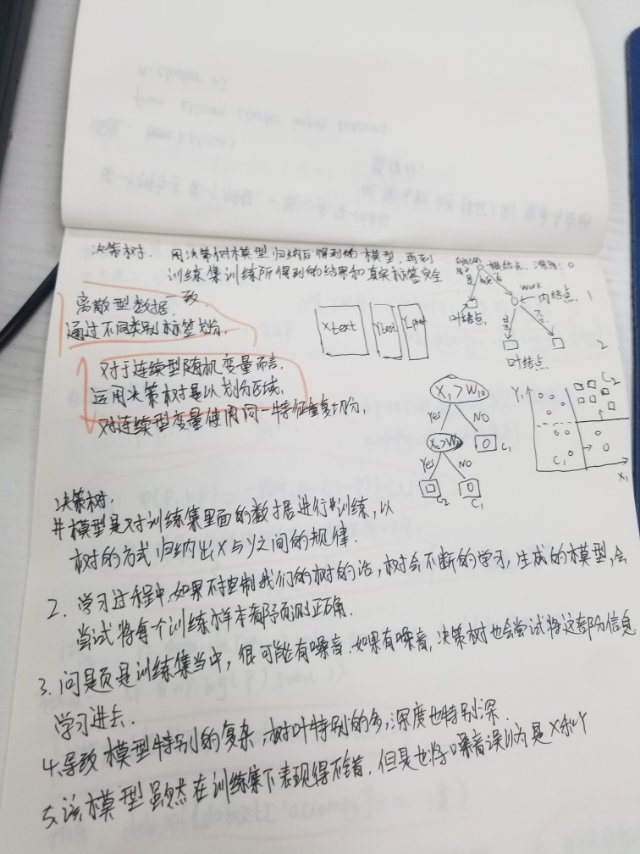 决策树. 用决策树模型归纳后得到的模型, 再到
训练集训练所得到的结果和真实标签完全
一致.
离散型数据:
通过不同类别标签划分.
对于连续型随机变量而言,
运用决策树是以划分区域.
对连续型变量使用同一特征重复切分,
Xtest
Ytest
Ypred
根结点. 深度: 0
是
否
work
内结点. 1
叶结点.
是
否
2
叶结点
X₁>W₁₀
Yes
No
C₁
Yes
No
C₂
C₁
Y₁
C₂
C₁
X₁
决策树.
1. 模型是对训练集里面的数据进行训练, 以
树的方式归纳出X与Y之间的规律.
2. 学习过程中如果不控制我们的树的话, 树会不断的学习, 生成的模型, 会
尝试将每个训练样本都预测正确.
3. 问题是训练集当中, 很可能有噪音. 如果有噪音, 决策树也会尝试将这部分信息
学习进去.
4. 导致模型特别的复杂, 树叶特别的多, 深度也特别深.
5. 该模型虽然在训练集下表现得不错, 但是也将噪音误认为是X和Y